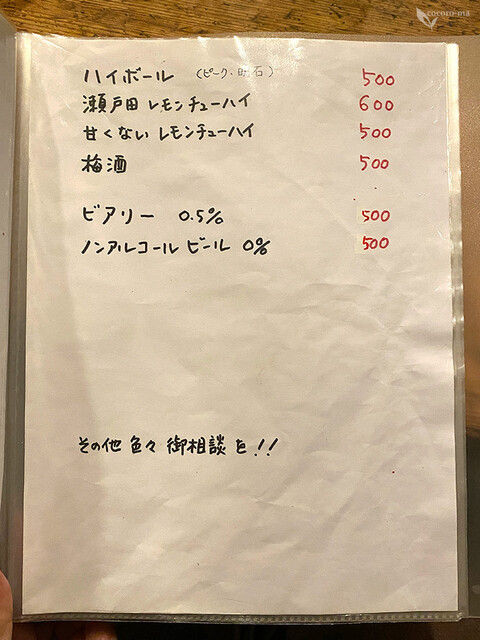 cocoru-ma
ハイボール (ピーク、明石) 500
瀬戸田レモンチューハイ 600
甘くないレモンチューハイ 500
梅酒 500
ビアリー 0.5% 500
ノンアルコールビール 0% 500
その他 色々 御相談を!!